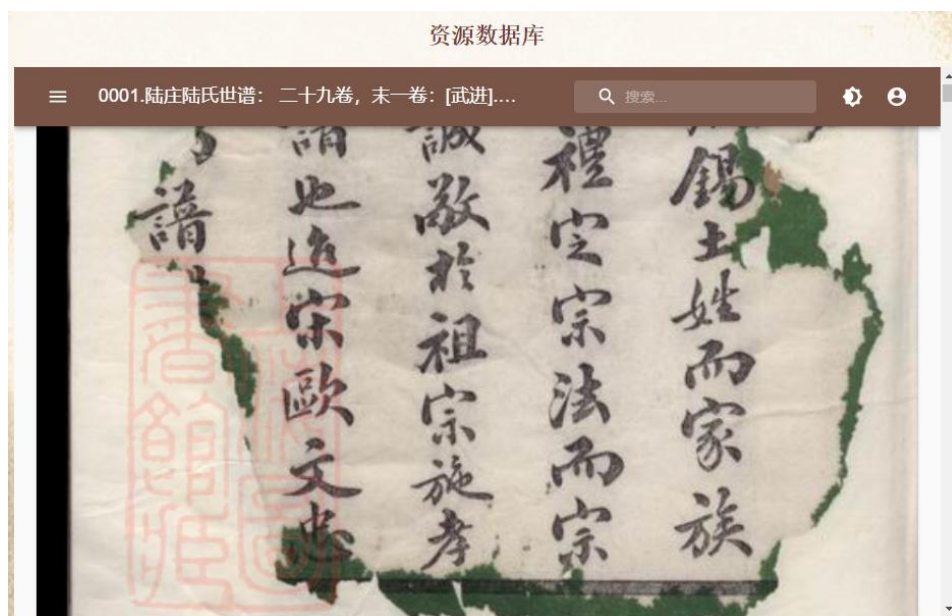 资源数据库
0001.陆庄陆氏世谱： 二十九卷，末一卷：[武进]....
搜索...
錫土姓而家族
禮定宗法而宗
誠敬於祖宗施孝
譜也迨宋歐文忠
譜